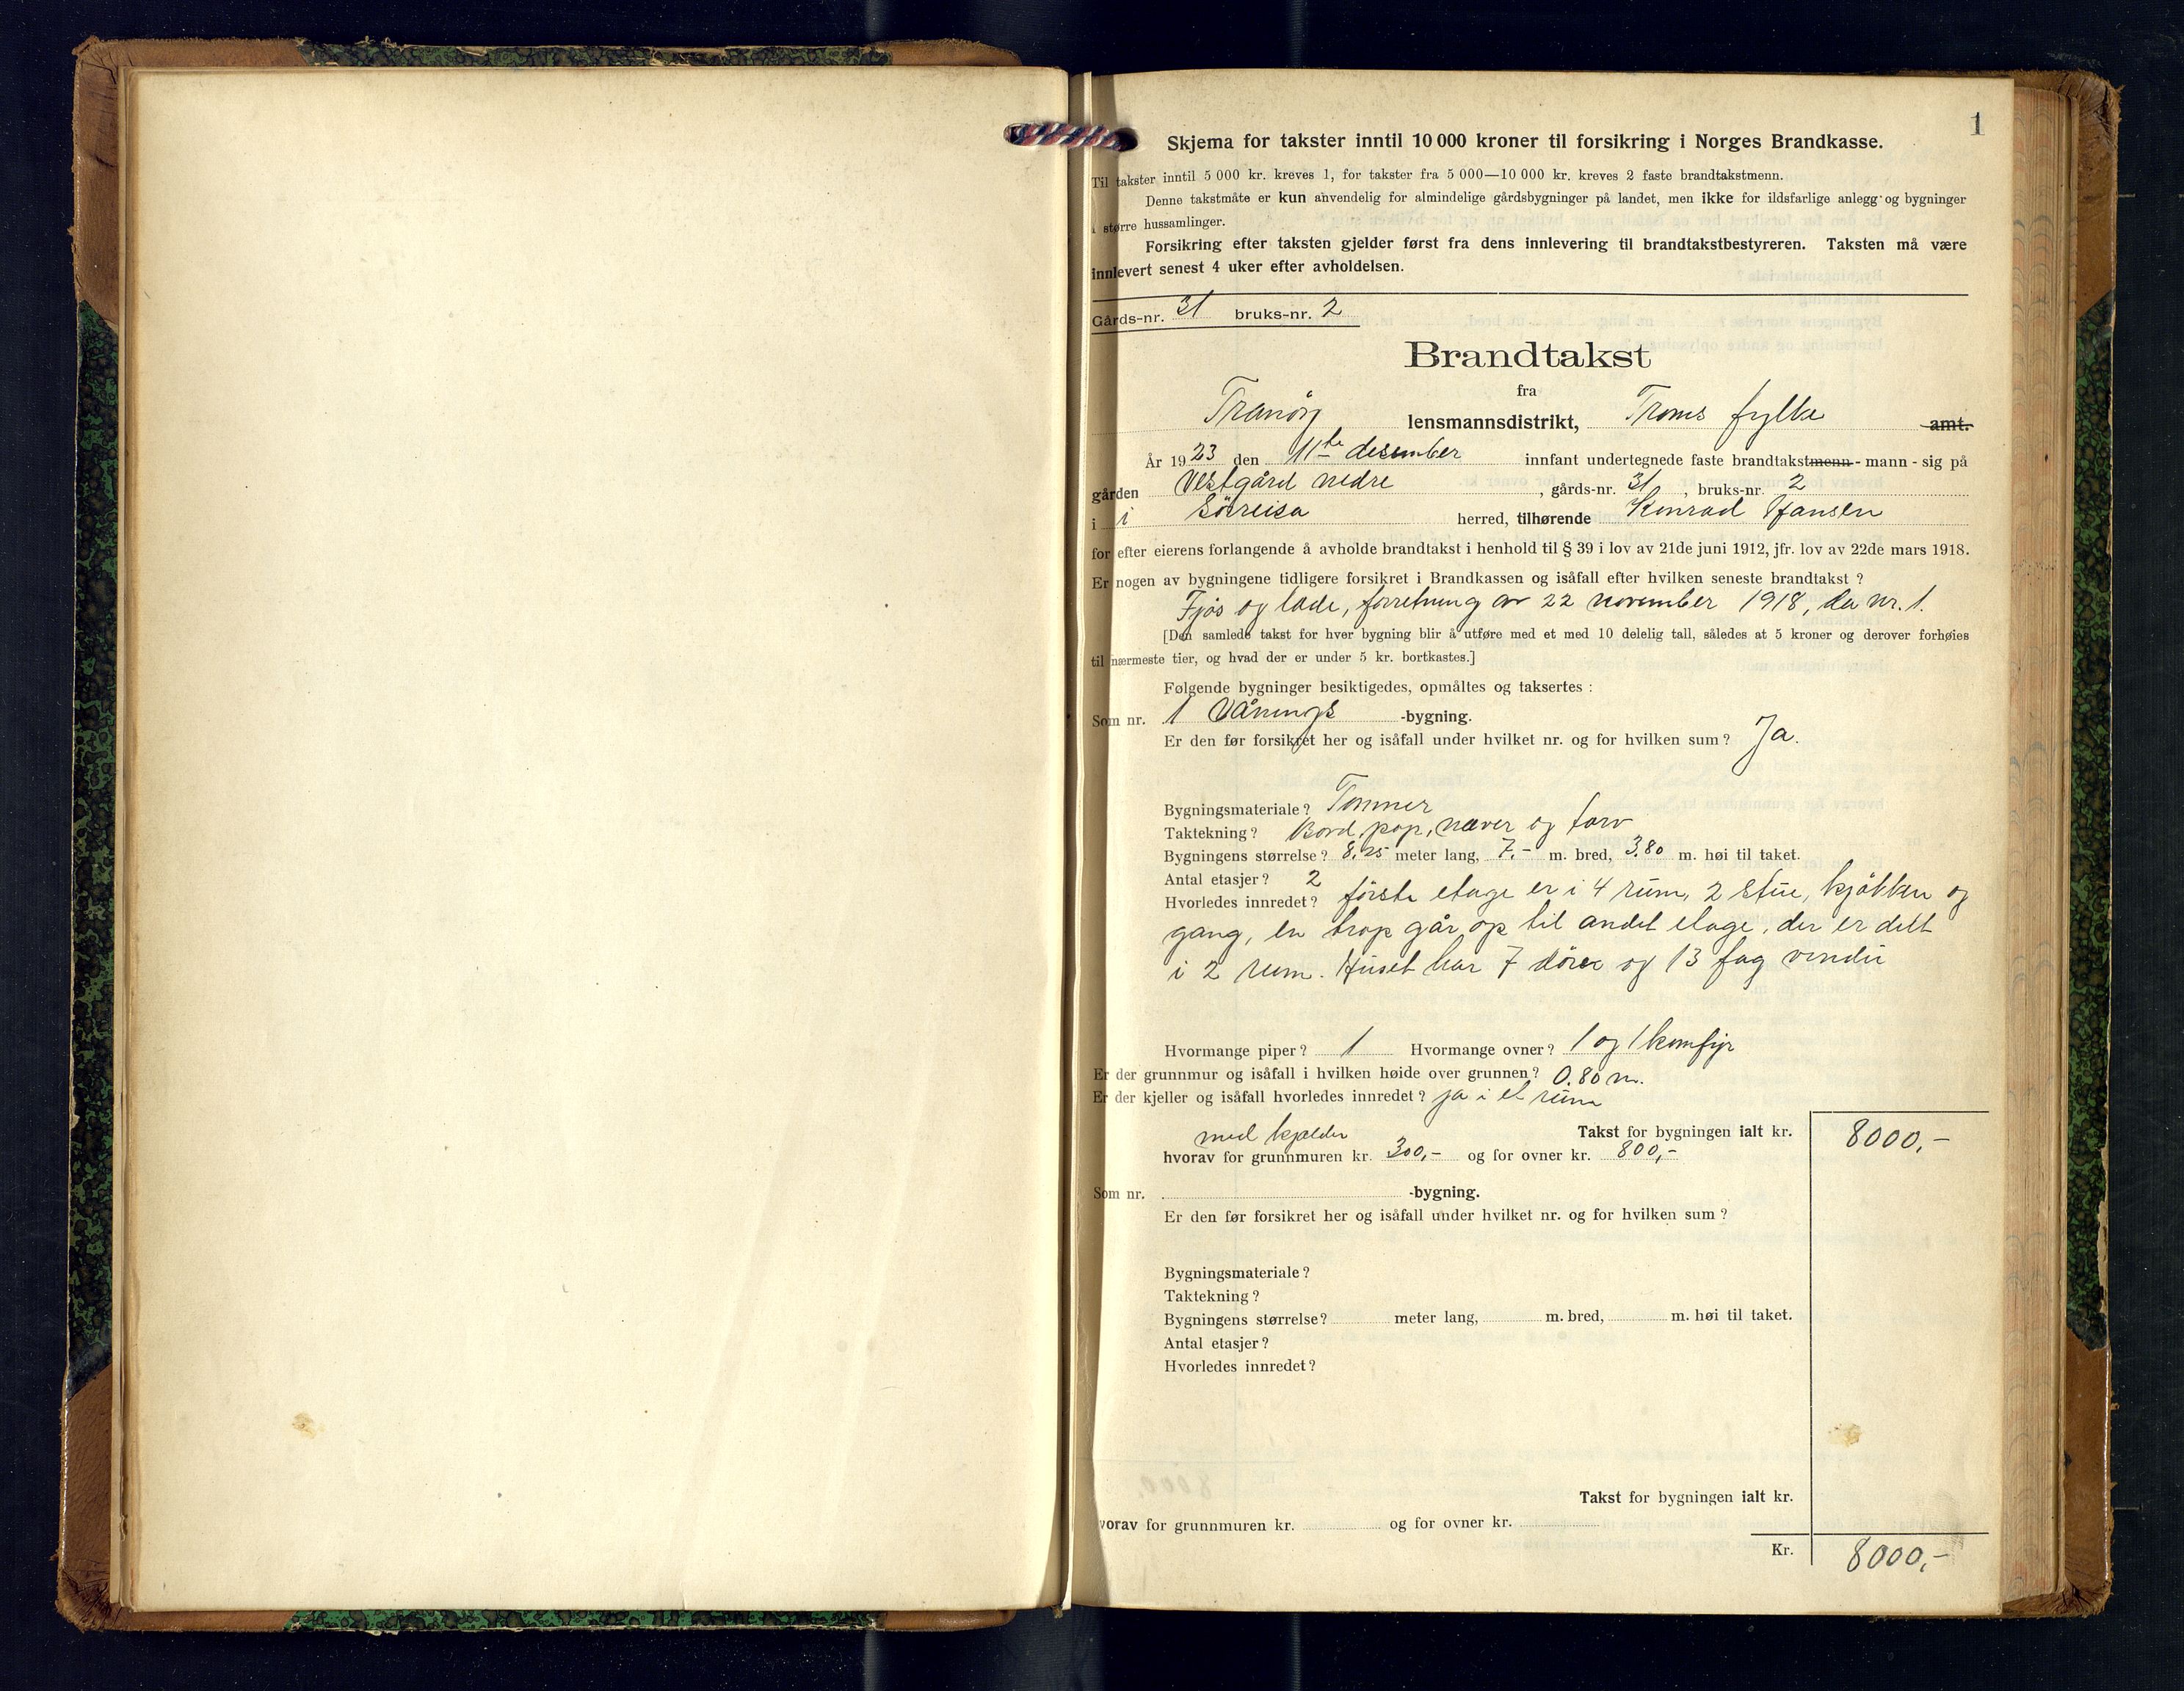 1
Skjema for takster inntil 10 000 kroner til forsikring i Norges Brandkasse.
Til takster inntil 5 000 kr. kreves 1, for takster fra 5 000—10 000 kr. kreves 2 faste brandtakstmenn.
Denne takstmåte er kun anvendelig for almindelige gårdsbygninger på landet, men ikke for ildsfarlige anlegg og bygninger
i større hussamlinger.
Forsikring efter taksten gjelder først fra dens innlevering til brandtakstbestyreren. Taksten må være
innlevert senest 4 uker efter avholdelsen.
Gårds-nr. 31 bruks-nr. 2
Brandtakst
fra
Tranöy lensmannsdistrikt, Troms fylke amt.
År 1923 den 11te desember innfant undertegnede faste brandtakstmenn - mann - sig på
gården Vestgård nedre, gårds-nr. 31, bruks-nr. 2
i i Sörreisa herred, tilhørende Konrad Hansen
for efter eierens forlangende å avholde brandtakst i henhold til § 39 i lov av 21de juni 1912, jfr. lov av 22de mars 1918.
Er nogen av bygningene tidligere forsikret i Brandkassen og isåfall efter hvilken seneste brandtakst ?
Fjøs og lade, forretning av 22 november 1918, da nr. 1.
[Den samlede takst for hver bygning blir å utføre med et med 10 delelig tall, således at 5 kroner og derover forhøies
til nærmeste tier, og hvad der er under 5 kr. bortkastes.]
Følgende bygninger besiktigedes, opmåltes og taksertes :
Som nr. 1 Vånings -bygning.
Er den før forsikret her og isåfall under hvilket nr. og for hvilken sum? Ja.
Bygningsmateriale? Tømmer
Taktekning? Bord, pap, næver og torv
Bygningens størrelse? 8.25 meter lang, 7.- m. bred, 3.80 m. høi til taket.
Antal etasjer? 2
Hvorledes innredet? förste etage er i 4 rum, 2 stue, kjökken og
gang, en trap går op til andet etage, der er delt
i 2 rum. Huset har 7 dörer og 13 fag vindu
Hvormange piper? 1 Hvormange ovner? 1 og 1 komfyr
Er der grunnmur og isåfall i hvilken høide over grunnen? 0.80 m.
Er der kjeller og isåfall hvorledes innredet? ja i et rum
med kjelder Takst for bygningen ialt kr. 8000,-
hvorav for grunnmuren kr. 300,- og for ovner kr. 800,-
Som nr. -bygning.
Er den før forsikret her og isåfall under hvilket nr. og for hvilken sum ?
Bygningsmateriale ?
Taktekning ?
Bygningens størrelse? meter lang, m. bred, m. høi til taket.
Antal etasjer ?
Hvorledes innredet ?
Takst for bygningen ialt kr.
vorav for grunnmuren kr. og for ovner kr.
Kr. 8000,-